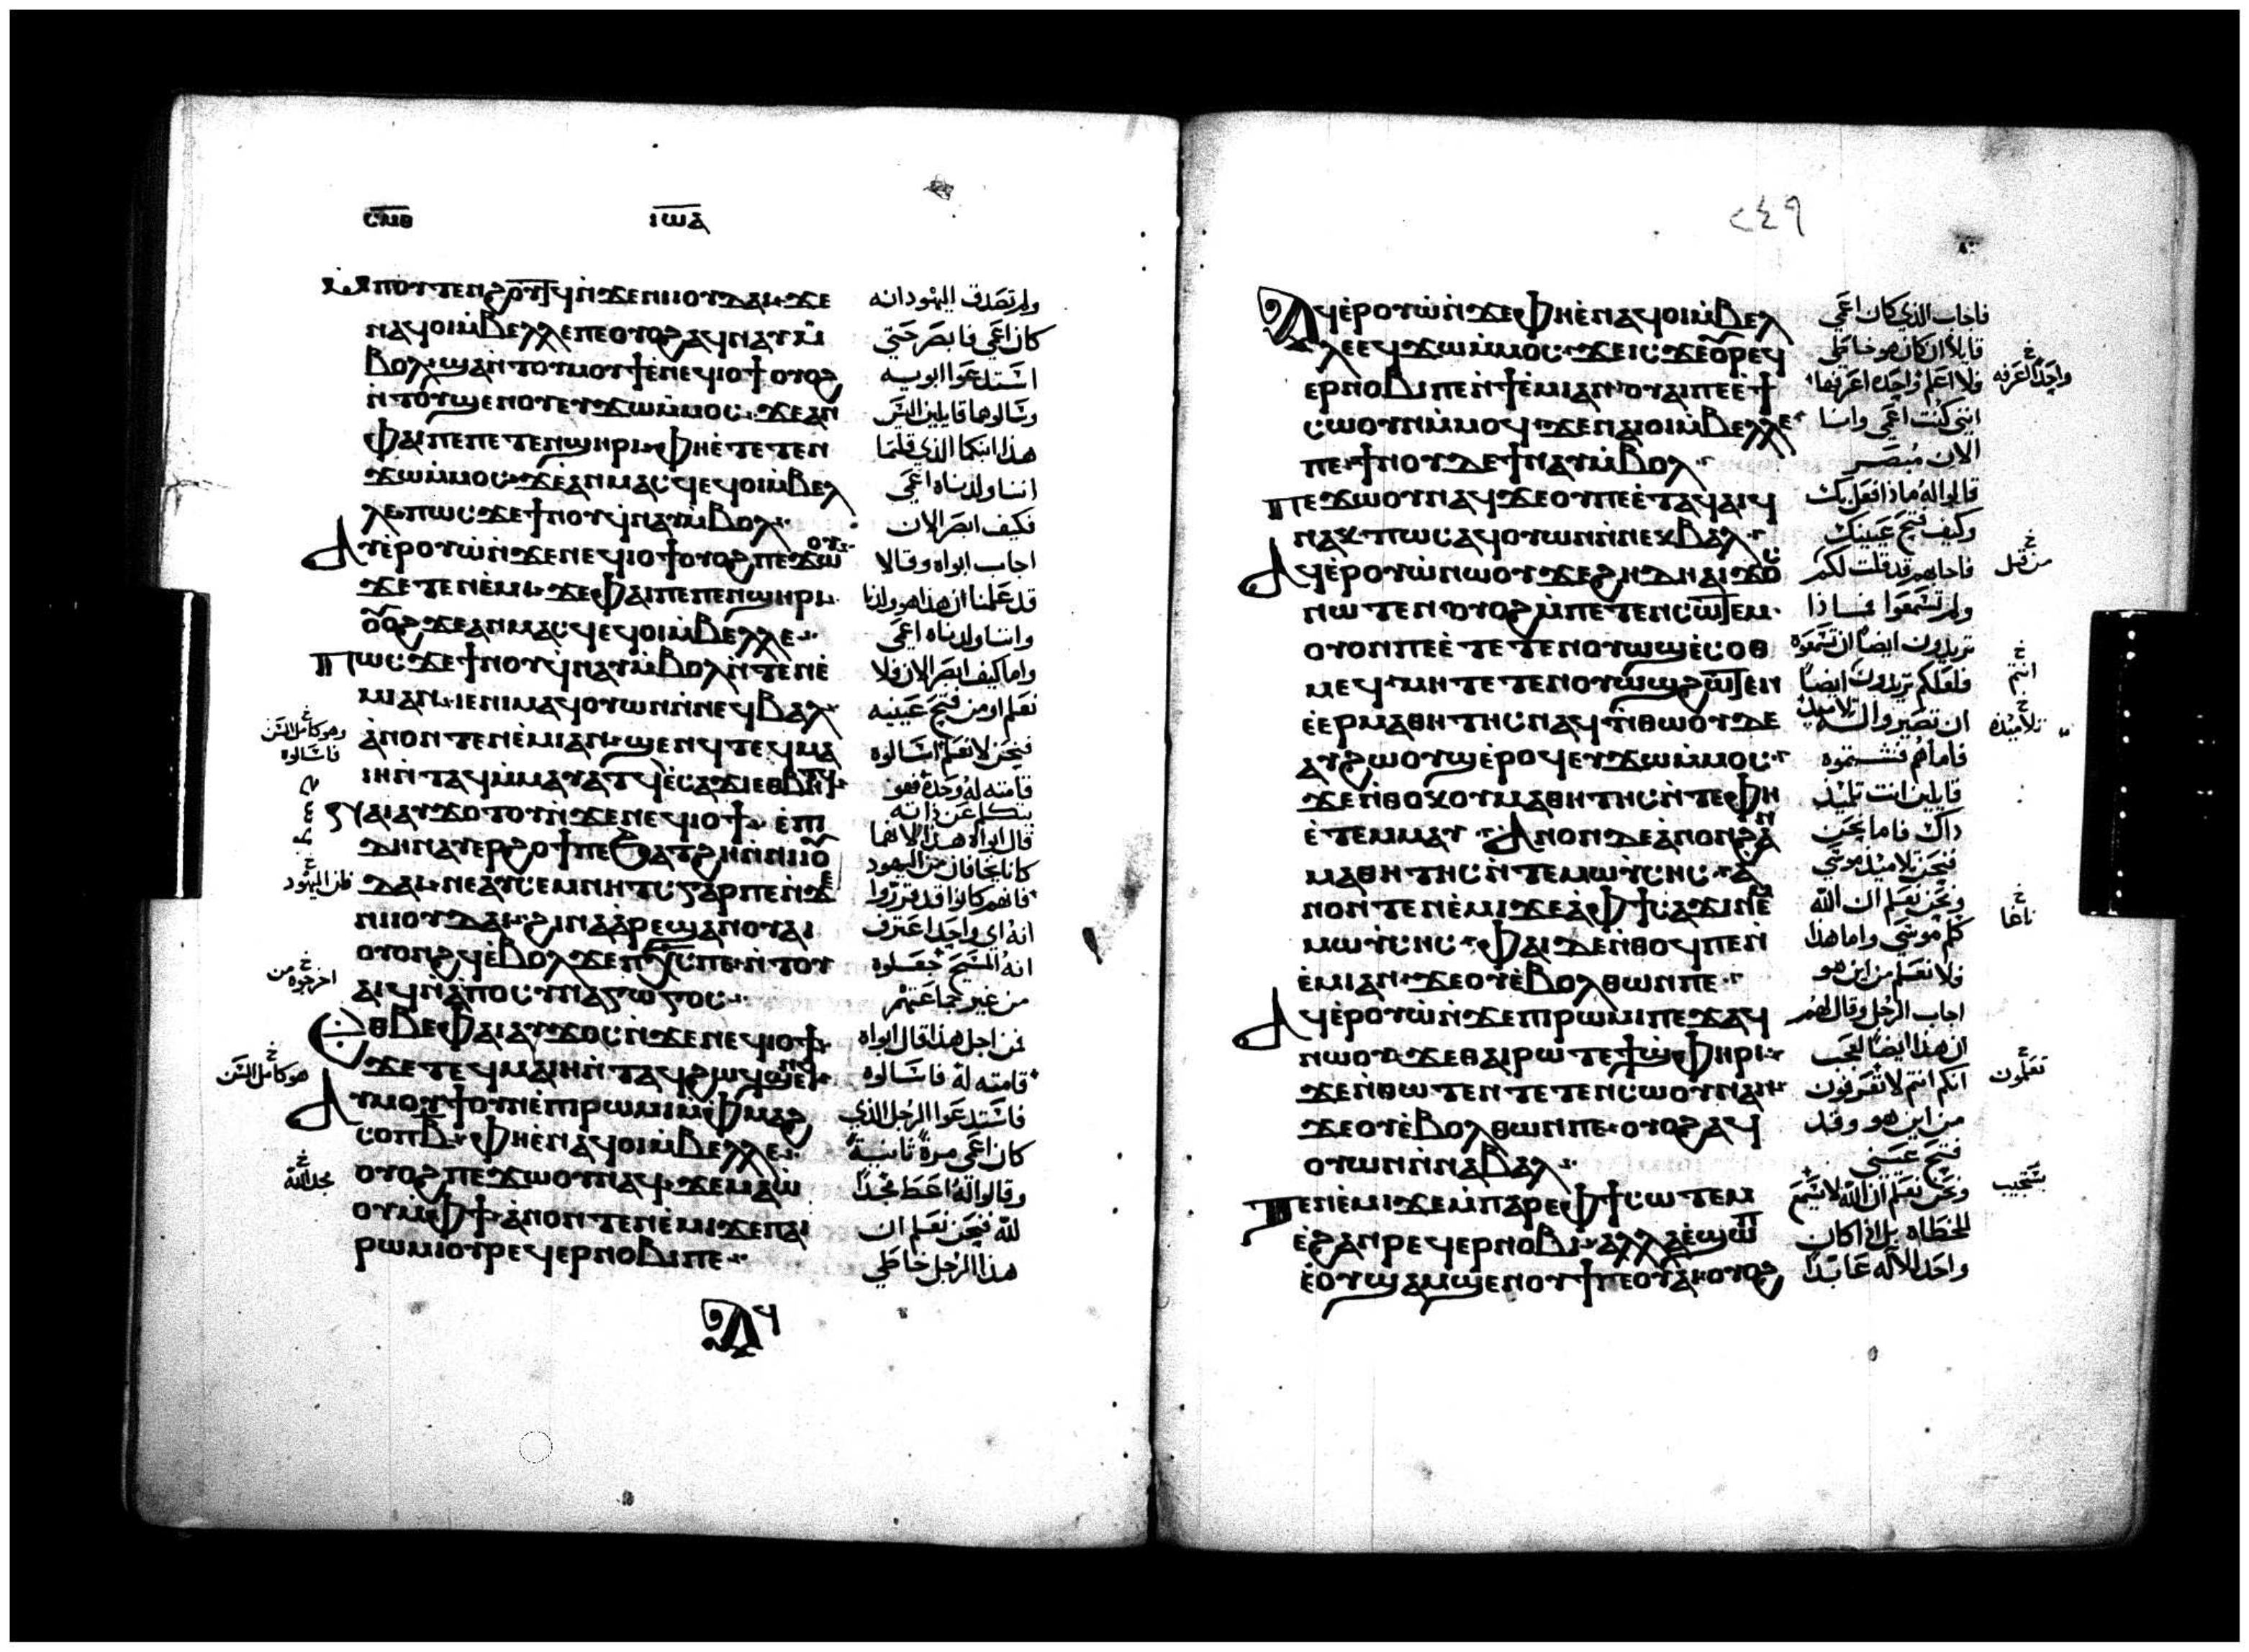 ⲥⲙⲑ ⲓⲱⲁ
ⲙⲡⲟⲩⲧⲉⲛϩⲟⲩⲧϥ ⲛϫⲉⲛⲓⲓⲟⲩⲇⲁⲓ ϫⲉ ولم تصدق اليهود انه
ⲛⲁϥⲟⲓ ⲙⲃⲉⲗⲗⲉ ⲡⲉ ⲟⲩⲟϩ ⲁϥⲛⲁⲩ ⲙ كان اعمي فابصر حتي
ⲃⲟⲗ ϣⲁⲛⲧⲟⲩⲙⲟⲩϯ ⲉⲛⲉϥⲓⲟϯ ⲟⲩⲟϩ استدعوا ابويه
ⲛⲧⲟⲩϣⲉⲛⲟⲩ ⲉⲩϫⲱ ⲙⲙⲟⲥ ϫⲉ ⲁⲛ وسالوهما قايلين اليس
ⲫⲁⲓ ⲡⲉ ⲡⲉⲧⲉⲛϣⲏⲣⲓ ⲫⲏ ⲉⲧⲉⲧⲉⲛ هذا ابنكما الذي قلتما
ϫⲱ ⲙⲙⲟⲥ ϫⲉ ⲁⲛⲙⲁⲥϥ ⲉϥⲟⲓ ⲙⲃⲉⲗ اننا ولدناه اعمي
ⲗⲉ ⲡⲱⲥ ϫⲉ ϯⲛⲟⲩ ϥⲛⲁⲩ ⲙⲃⲟⲗ فكيف ابصر الان
ⲁⲩⲉⲣⲟⲩⲱ ⲛϫⲉⲛⲉϥⲓⲟϯ ⲟⲩⲟϩ ⲡⲉϫⲱⲟⲩ اجاب ابواه وقالا
ϫⲉ ⲧⲉⲛⲉⲙⲓ ϫⲉ ⲫⲁⲓ ⲡⲉ ⲡⲉⲛϣⲏⲣⲓ قد علمنا ان هذا هو ولدنا
ⲟⲩⲟϩ ϫⲉ ⲁⲛⲙⲁⲥϥ ⲉϥⲟⲓ ⲙⲃⲉⲗⲗⲉ واننا ولدناه اعمي
ⲡⲱⲥ ϫⲉ ϯⲛⲟⲩ ϥⲛⲁⲩ ⲙⲃⲟⲗ ⲛⲧⲉⲛⲉ واما كيف ابصر الان فلا
ⲙⲓ ⲁⲛ ⲓⲉ ⲛⲓⲙ ⲁϥⲟⲩⲱⲛ ⲛⲛⲉϥⲃⲁⲗ نعلم او من فتح عينيه
ⲁⲛⲟⲛ ⲧⲉⲛⲉⲙⲓ ⲁⲛ ϣⲉⲛϥ ⲧⲉϥⲙⲁ فنحن لا نعلم اسالوه
ⲓⲏ ⲛⲧⲁϥ ⲙⲙⲁⲩⲁⲧϥ ⲉⲥⲁϫⲓ ⲉⲑⲃⲏⲧϥ قامته له وحده فهو
وهو كامل السن
فاسالوه
يتكلم عن ذاته
ⲛⲁⲓ ⲁⲩϫⲟⲧⲟⲩ ⲛϫⲉⲛⲉϥⲓⲟϯ ⲉⲡⲓ قال ابواه هذا لانهما
ⲇⲏ ⲛⲁⲩⲉⲣϩⲟϯ ⲡⲉ ϧⲁⲧϩⲏ ⲛⲛⲓⲓⲟⲩ كانا يخافان من اليهود
ⲇⲁⲓ ⲛⲉ ⲁⲩⲥⲉⲙⲛⲏⲧⲥ ⲅⲁⲣ ⲡⲉ ⲛϫⲉ فانهم كانوا قد قرروا
لان اليهود
ⲛⲓⲓⲟⲩⲇⲁⲓ ϩⲓⲛⲁ ⲁⲣⲉϣⲁⲛ ⲟⲩⲁⲓ انه اي واحد اعترف
ⲟⲩⲟⲛϩϥ ⲉⲃⲟⲗ ϫⲉ ⲡⲭⲥ ⲡⲉ ⲛⲧⲟⲩ انه المسيح جعلوه
ⲁⲓϥ ⲛⲁⲡⲟⲥⲩⲛⲁⲅⲱⲅⲟⲥ من غير جماعتهم
اخرجوه من
ⲉⲑⲃⲉ ⲫⲁⲓ ⲁⲩϫⲟⲥ ⲛϫⲉⲛⲉϥⲓⲟϯ فمن اجل هذا قال ابواه
ϫⲉ ⲧⲉϥⲙⲁⲓⲏ ⲛⲧⲁϥ ϩⲱϥ ϣⲉⲛϥ قامته له فاسالوه
هو كامل السن
ⲁⲩⲙⲟⲩϯ ⲟⲩⲛ ⲉⲡⲓⲣⲱⲙⲓ ⲙⲫⲙⲁϩ فاستدعوا الرجل الذي
ⲥⲟⲡ ⲃ ⲫⲏ ⲉⲛⲁϥⲟⲓ ⲙⲃⲉⲗⲗⲉ كان اعمي مرة ثانية
ⲟⲩⲟϩ ⲡⲉϫⲱⲟⲩ ⲛⲁϥ ϫⲉ ⲙⲁⲱ وقالوا له اعط مجدا
مجد الله
ⲟⲩ ⲙⲫϯ ⲁⲛⲟⲛ ⲧⲉⲛⲉⲙⲓ ϫⲉ ⲡⲁⲓ لله فنحن نعلم ان
ⲣⲱⲙⲓ ⲟⲩⲣⲉϥⲉⲣⲛⲟⲃⲓ ⲡⲉ هذا الرجل خاطي
ⲁϥ
٢٤٩
ⲁϥⲉⲣⲟⲩⲱ ⲛϫⲉ ⲫⲏ ⲉⲛⲁϥⲟⲓ ⲙⲃⲉⲗ فاجاب الذي كان اعمي
ⲗⲉ ⲉϥϫⲱ ⲙⲙⲟⲥ ϫⲉ ⲓⲥϫⲉ ⲟⲩⲣⲉϥ قايلا ان كان هو خاطي
ⲉⲣⲛⲟⲃⲓ ⲡⲉ ⲛϯⲉⲙⲓ ⲁⲛ ⲟⲩⲁⲓ ⲡⲉ ⲉϯ فلا اعلم واحده اعرفها
واحدا اعرفه
ⲥⲱⲟⲩⲛ ⲙⲙⲟϥ ϫⲉ ⲛⲁⲓⲟⲓ ⲙⲃⲉⲗⲗⲉ انني كنت اعمي وانا
ⲡⲉ ϯⲛⲟⲩ ⲇⲉ ϯⲛⲁⲩ ⲙⲃⲟⲗ الان مبصر
ⲡⲉϫⲱⲟⲩ ⲛⲁϥ ϫⲉ ⲟⲩ ⲡⲉ ⲉⲧⲁϥⲁⲓϥ قالوا له ماذا فعل بك
ⲛⲁⲕ ⲡⲱⲥ ⲁϥⲟⲩⲱⲛ ⲛⲛⲉⲕⲃⲁⲗ وكيف فتح عينيك
ⲁϥⲉⲣⲟⲩⲱ ⲛⲱⲟⲩ ϫⲉ ϩⲏⲇⲏ ⲁⲓϫⲟⲥ فاجابهم قد قلت لكم
من قبل
ⲛⲱⲧⲉⲛ ⲟⲩⲟϩ ⲙⲡⲉⲧⲉⲛⲥⲱⲧⲉⲙ ولم تسمعوا فماذا
ⲟⲩ ⲟⲛ ⲡⲉ ⲉⲧⲉⲧⲉⲛⲟⲩⲱϣ ⲉⲥⲟⲑ تريدون ايضا ان تسمعوه
ⲙⲉϥ ⲙⲏ ⲧⲉⲧⲉⲛⲟⲩⲱϣ ϩⲱⲧⲉⲛ فلعلكم تريدون ايضا
انتم
ⲉⲉⲣⲙⲁⲑⲏⲧⲏⲥ ⲛⲁϥ ⲛⲑⲱⲟⲩ ⲇⲉ ان تصيروا له تلاميذ
تلاميذه
ⲁⲩϩⲱⲟⲩϣ ⲉⲣⲟϥ ⲉⲩϫⲱ ⲙⲙⲟⲥ فاما هم فشتموه
ϫⲉ ⲛⲑⲟⲕ ⲟⲩⲙⲁⲑⲏⲧⲏⲥ ⲛⲧⲉ ⲫⲏ قايلين انت تلميذ
ⲉⲧⲉⲙⲙⲁⲩ ⲁⲛⲟⲛ ⲇⲉ ⲁⲛⲟⲛ ϩⲁⲛ ذاك فاما نحن
ⲙⲁⲑⲏⲧⲏⲥ ⲛⲧⲉ ⲙⲱⲩⲥⲏⲥ ⲁ فنحن تلاميذ موسي
ⲛⲟⲛ ⲧⲉⲛⲉⲙⲓ ϫⲉ ⲁ ⲫϯ ⲥⲁϫⲓ ⲛⲉⲙ ونحن نعلم ان الله
ⲙⲱⲩⲥⲏⲥ ⲫⲁⲓ ⲇⲉ ⲛⲑⲟϥ ⲡⲉⲛ كلم موسي واما هذا
ⲉⲙⲓ ⲁⲛ ϫⲉ ⲟⲩⲉⲃⲟⲗ ⲑⲱⲛ ⲡⲉ فلا نعلم من اين هو
ⲁϥⲉⲣⲟⲩⲱ ⲛϫⲉⲡⲓⲣⲱⲙⲓ ⲡⲉϫⲁϥ اجاب الرجل وقال لهم
ⲛⲱⲟⲩ ϫⲉ ⲑⲁⲓ ⲣⲱ ⲧⲉ ϯϣⲫⲏⲣⲓ ان هذا ايضا لعجب
ϫⲉ ⲛⲑⲱⲧⲉⲛ ⲧⲉⲧⲉⲛⲥⲱⲟⲩⲛ ⲁⲛ انكم انتم لا تعرفون
تعلمون
ϫⲉ ⲟⲩⲉⲃⲟⲗ ⲑⲱⲛ ⲡⲉ ⲟⲩⲟϩ ⲁϥ من اين هو وقد
ⲟⲩⲱⲛ ⲛⲛⲁⲃⲁⲗ فتح عيني
ⲧⲉⲛⲉⲙⲓ ϫⲉ ⲙⲡⲁⲣⲉ ⲫϯ ⲥⲱⲧⲉⲙ ونحن نعلم ان الله لا يسمع
يستجيب
ⲉϩⲁⲛⲣⲉϥⲉⲣⲛⲟⲃⲓ ⲁⲗⲗⲁ ⲉϣⲱⲡ للخطاه بل اذا كان
ⲉⲟⲩϣⲁⲙϣⲉⲛⲟⲩϯ ⲡⲉ ⲟⲩⲁⲓ ⲟⲩⲟϩ واحد للاله عابدا